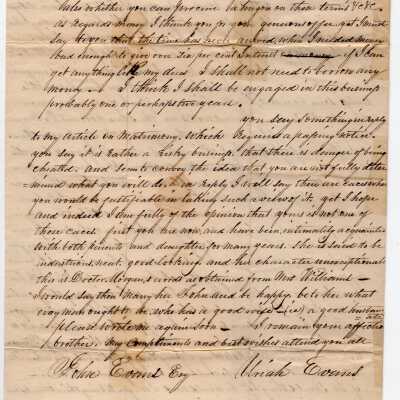 tales whether you can purchase a bargain on those terms &c &c.
as regards money I thank you for your generous offer yet I must
say to you that the time has never arrived when I needed money
bad enough to give over Six per cent Interest if I can
get anything like my dues I shall not need to borrow any
money — I think I shall be engaged in this business
probably one or perhaps two years.
you say Something in reply
to my article on Matrimony, which requires a passing notice.
you say it is rather a risky business, that there is danger of being
cheated. and seem to convey the idea that you are not fully deter
mined what you will do. in reply I will say there are cases where
you would be justifiable in taking such a view of it. yet I hope
and indeed I am fully of the opinion that yours is not one of
those cases. for you have now, and have been, intimately acquainted
with both parents and daughter for many years. She is said to be
industrious, neat, good looking, and her character unexceptionable
this is Doctor Morgans words as obtained from Mrs Williams —
I would say then marry her John and be happy, be to her what
every man ought to be who has a good wife (i.e.) a good husband
please write me again soon — I remain your affectio
ate
brother. my compliments and best wishes attend you all
John Evans Esq Uriah Evans